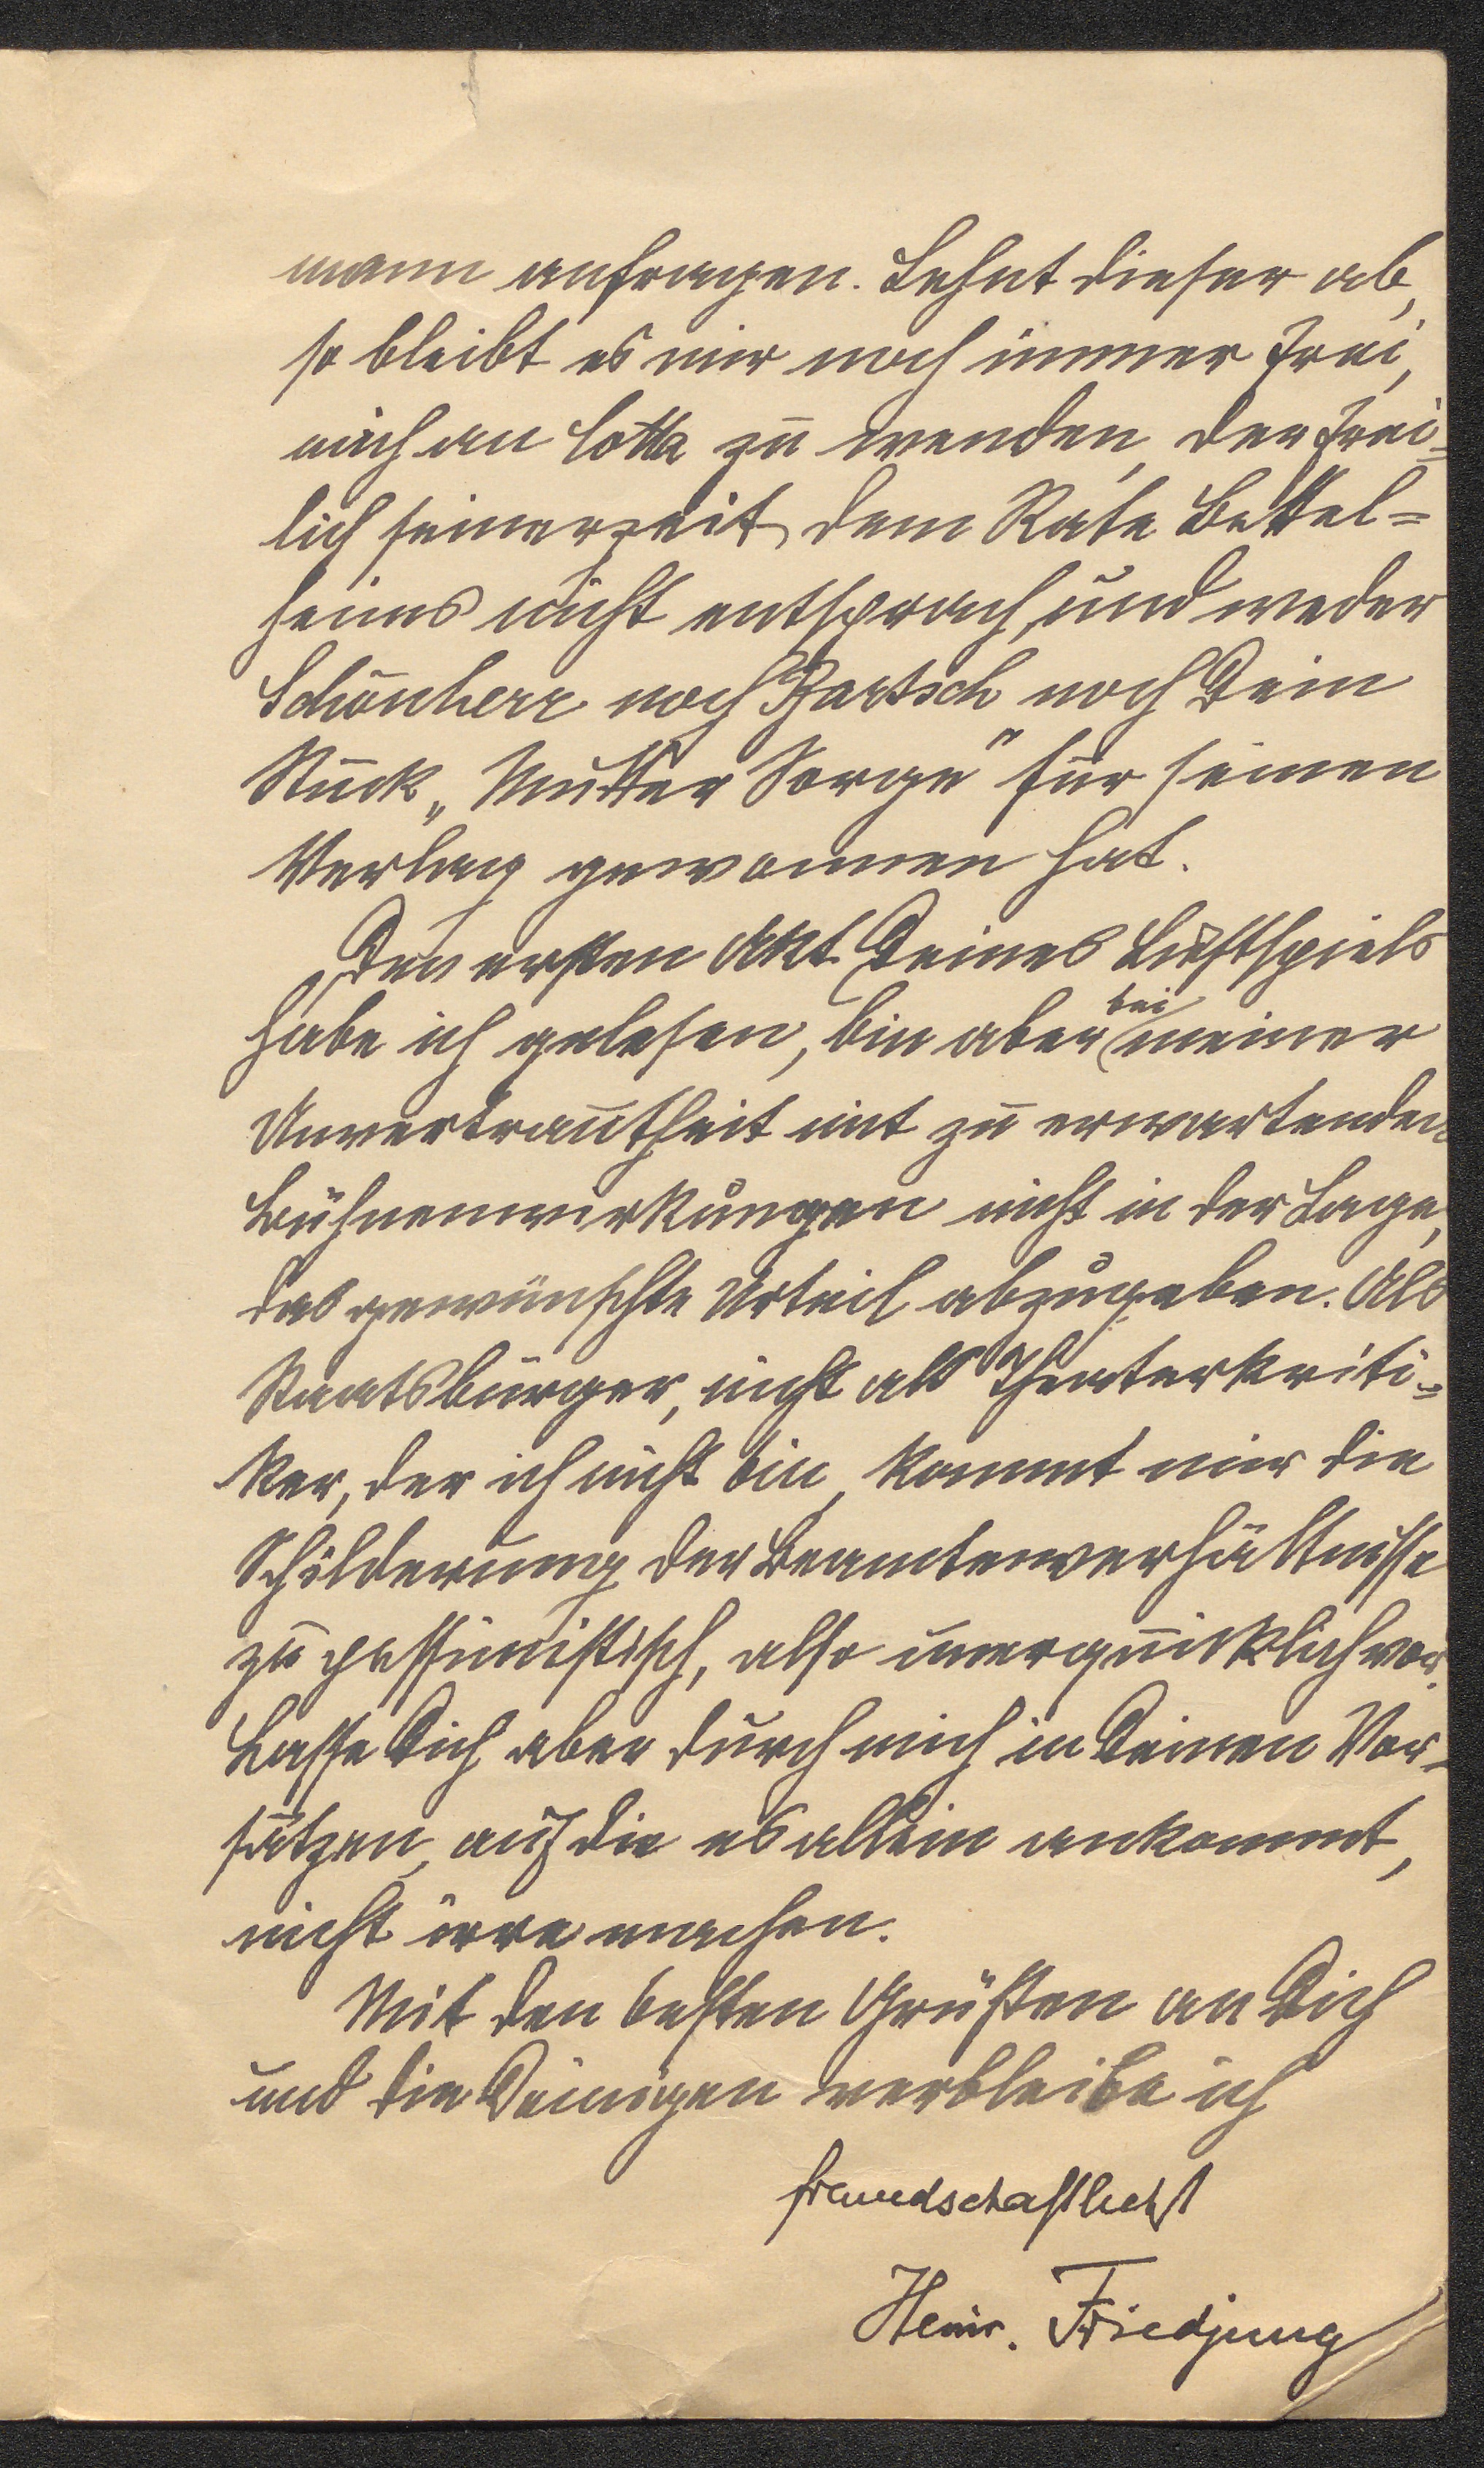 mann anfragen. Lehnt dieser ab,
so bleibt es mir noch immer frei,
mich an Cotta zu wenden, der frei=
lich seinerzeit dem Rate Bettel=
heims nicht entsprach, und weder
Schönherr noch Bartsch noch Dein
Stück „Mutter Sorge" für seinen
Verlag gewonnen hat.
Den ersten Akt Deines Lustspiels
habe ich gelesen, bin aber bei meiner
Unvertrautheit mit zu erwartenden
Bühnenwirkungen nicht in der Lage,
das gewünschte Urteil abzugeben. Als
Staatsbürger, nicht als Theaterkriti=
ker, der ich nicht bin, kommt mir die
Schilderung der Beamtenverhältnisse
zu pessimistisch, also unerquicklich vor.
Lasse Dich aber durch mich in Deinen Vor-
sätzen, auf die es allein ankommt,
nicht irre machen.
Mit den besten Grüßen an Dich
und die Deinigen verbleibe ich
freundschaftlichst
Heinr. Friedjung